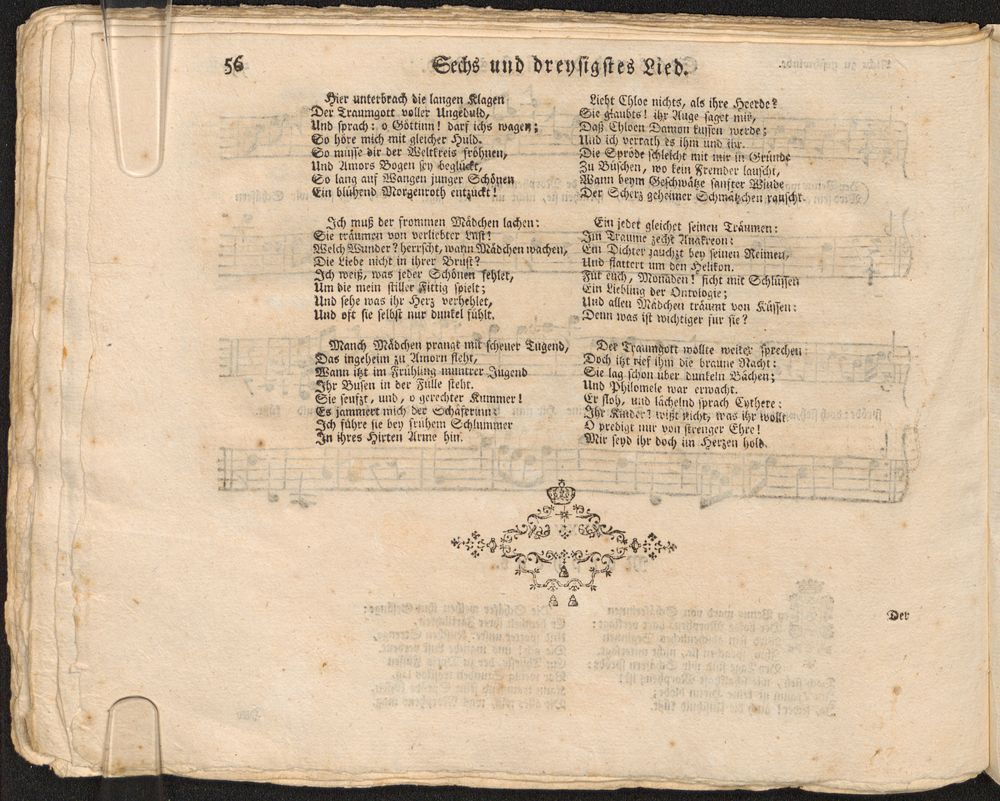 56
Sechs und dreysigstes Lied.
Hier unterbrach die langen Klagen
Der Traumgott voller Ungeduld,
Und sprach: o Göttinn! darf ichs wagen;
So höre mich mit gleicher Huld.
So müsse dir der Weltkreis fröhnen,
Und Amors Bogen sey beglückt,
So lang auf Wangen junger Schönen
Ein blühend Morgenroth entzückt!
Ich muß der frommen Mädchen lachen:
Sie träumen von verliebter Lust!
Welch Wunder? herrscht, wann Mädchen wachen,
Die Liebe nicht in ihrer Brust?
Ich weiß, was jeder Schönen fehlet,
Um die mein stiller Fittig spielt;
Und sehe was ihr Herz verhehlet,
Und oft sie selbst nur dunkel fühlt.
Manch Mädchen prangt mit scheuer Tugend,
Das ingeheim zu Amorn fleht,
Wann itzt im Frühling muntrer Jugend
Ihr Busen in der Fülle steht.
Sie seufzt, und, o gerechter Kummer!
Es jammert mich der Schäferinn:
Ich führe sie bey frühem Schlummer
In ihres Hirten Arme hin.
Liebt Chloe nichts, als ihre Heerde?
Sie glaubts! ihr Auge saget mir,
Daß Chloen Damon küssen werde;
Und ich verrath es ihm und ihr.
Die Spröde schleicht mit mir in Gründe
Zu Büschen, wo kein Fremder lauscht,
Wann beym Geschwätze sanfter Winde
Der Scherz geheimer Schmätzchen rauscht.
Ein jeder gleichet seinen Träumen:
Im Traume zecht Anakreon:
Ein Dichter jauchzt bey seinen Reimen,
Und flattert um den Helikon.
Für euch, Monaden! ficht mit Schlüssen
Ein Liebling der Ontologie;
Und allen Mädchen träumt von Küssen:
Denn was ist wichtiger für sie?
Der Traumgott wollte weiter sprechen:
Doch itzt rief ihm die braune Nacht:
Sie lag schon über dunkeln Bächen;
Und Philomele war erwacht.
Er floh, und lächelnd sprach Cythere:
Ihr Kinder! wißt nicht, was ihr wollt.
O predigt nur von strenger Ehre!
Mir seyd ihr doch im Herzen hold.
Der